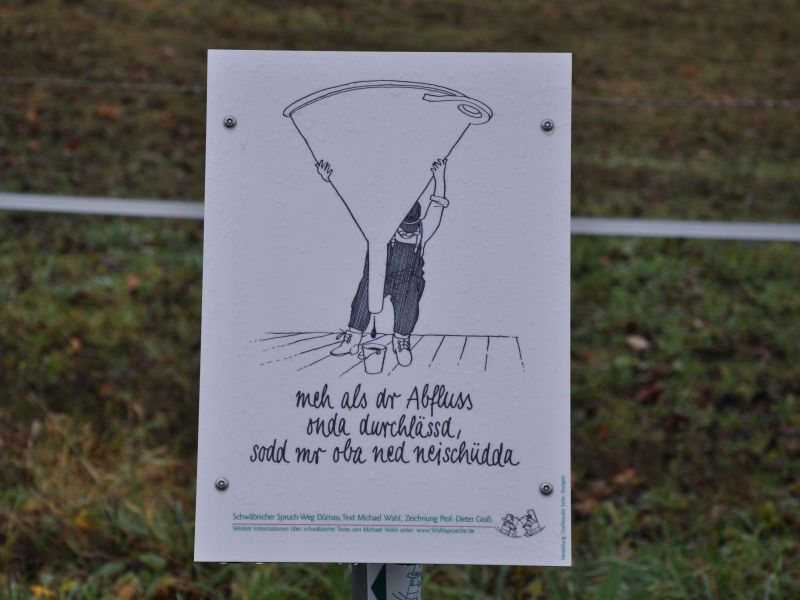 meh als dr Abfluss
onda durchlässd,
sodd mr oba ned neischüdda
Schwäbischer Spruch-Weg Dürnau, Text Michael Wahl, Zeichnung Prof. Dieter Groß.
Weitere Informationen über schwäbische Texte von Michael Wahl unter: www.Wahlsprueche.de